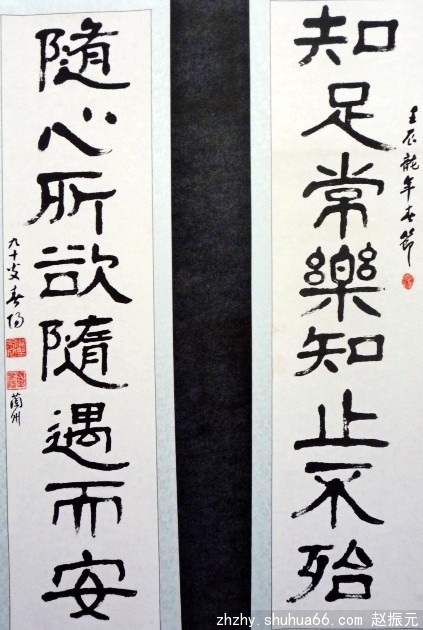 知足常樂知止不殆
壬辰龍年春節
隨心所欲隨遇而安
九十叟春陽
蘭州
zhzhy.shuhua66.com 赵振元